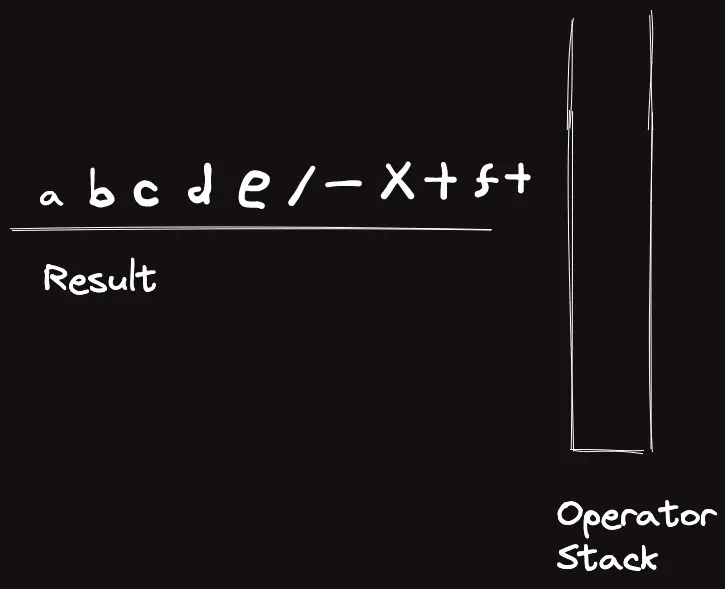 a b c d e / - x + f +
Result
Operator
Stack